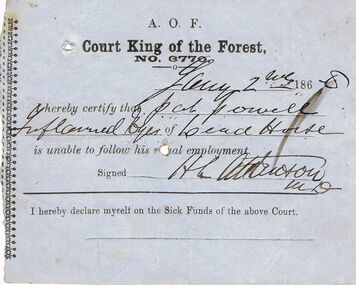 A. O. F.
Court King of the Forest,
NO. 6770.
186
I hereby certify that Powell
Inflamed Eyes of
is unable to follow his usual employment.
Signed Atkinson
M.D
I hereby declare myself on the Sick Funds of the above Court.